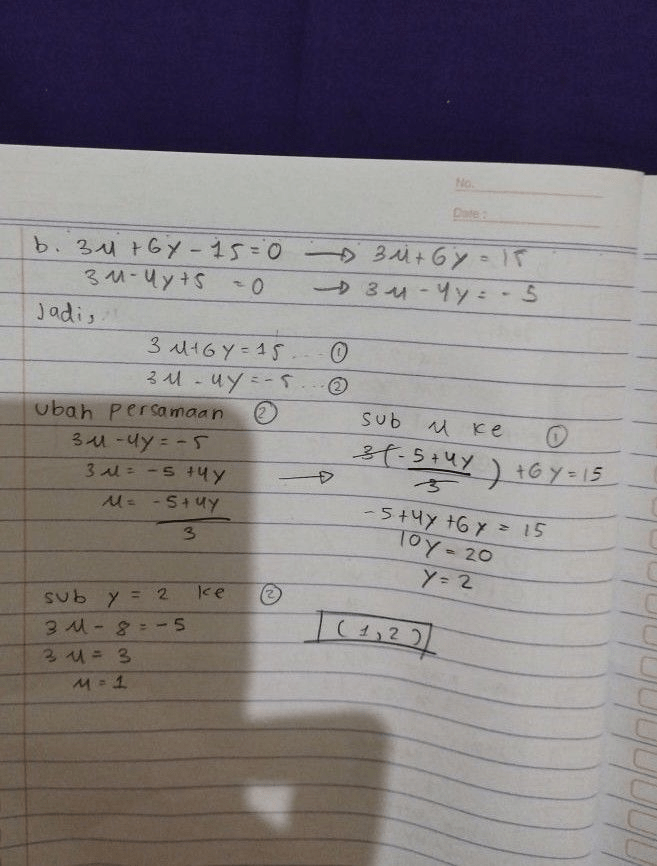 No.
Date :
b. 3x + 6y - 15 = 0 → 3x + 6y = 15
3x - 4y + 5 = 0 → 3x - 4y = - 5
Jadi,
3x + 6y = 15 ... ①
3x - 4y = -5 ... ②
Ubah persamaan ②
3x - 4y = -5
3x = -5 + 4y →
x = -5 + 4y / 3
sub x ke ①
3( -5 + 4y / 3 ) + 6y = 15
-5 + 4y + 6y = 15
10y = 20
y = 2
sub y = 2 ke ②
3x - 8 = -5
3x = 3
x = 1
( 1, 2 )